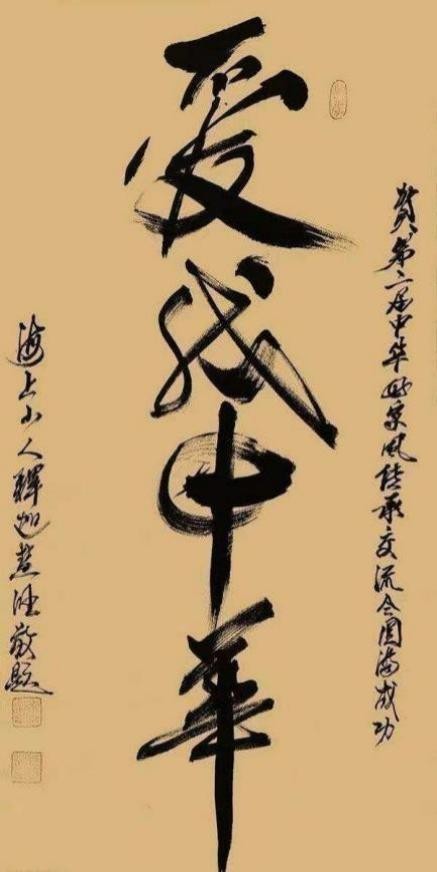 贺第二届中华 家风传承交流会圆满成功
爱我中华
海上山人释 慧 敬题